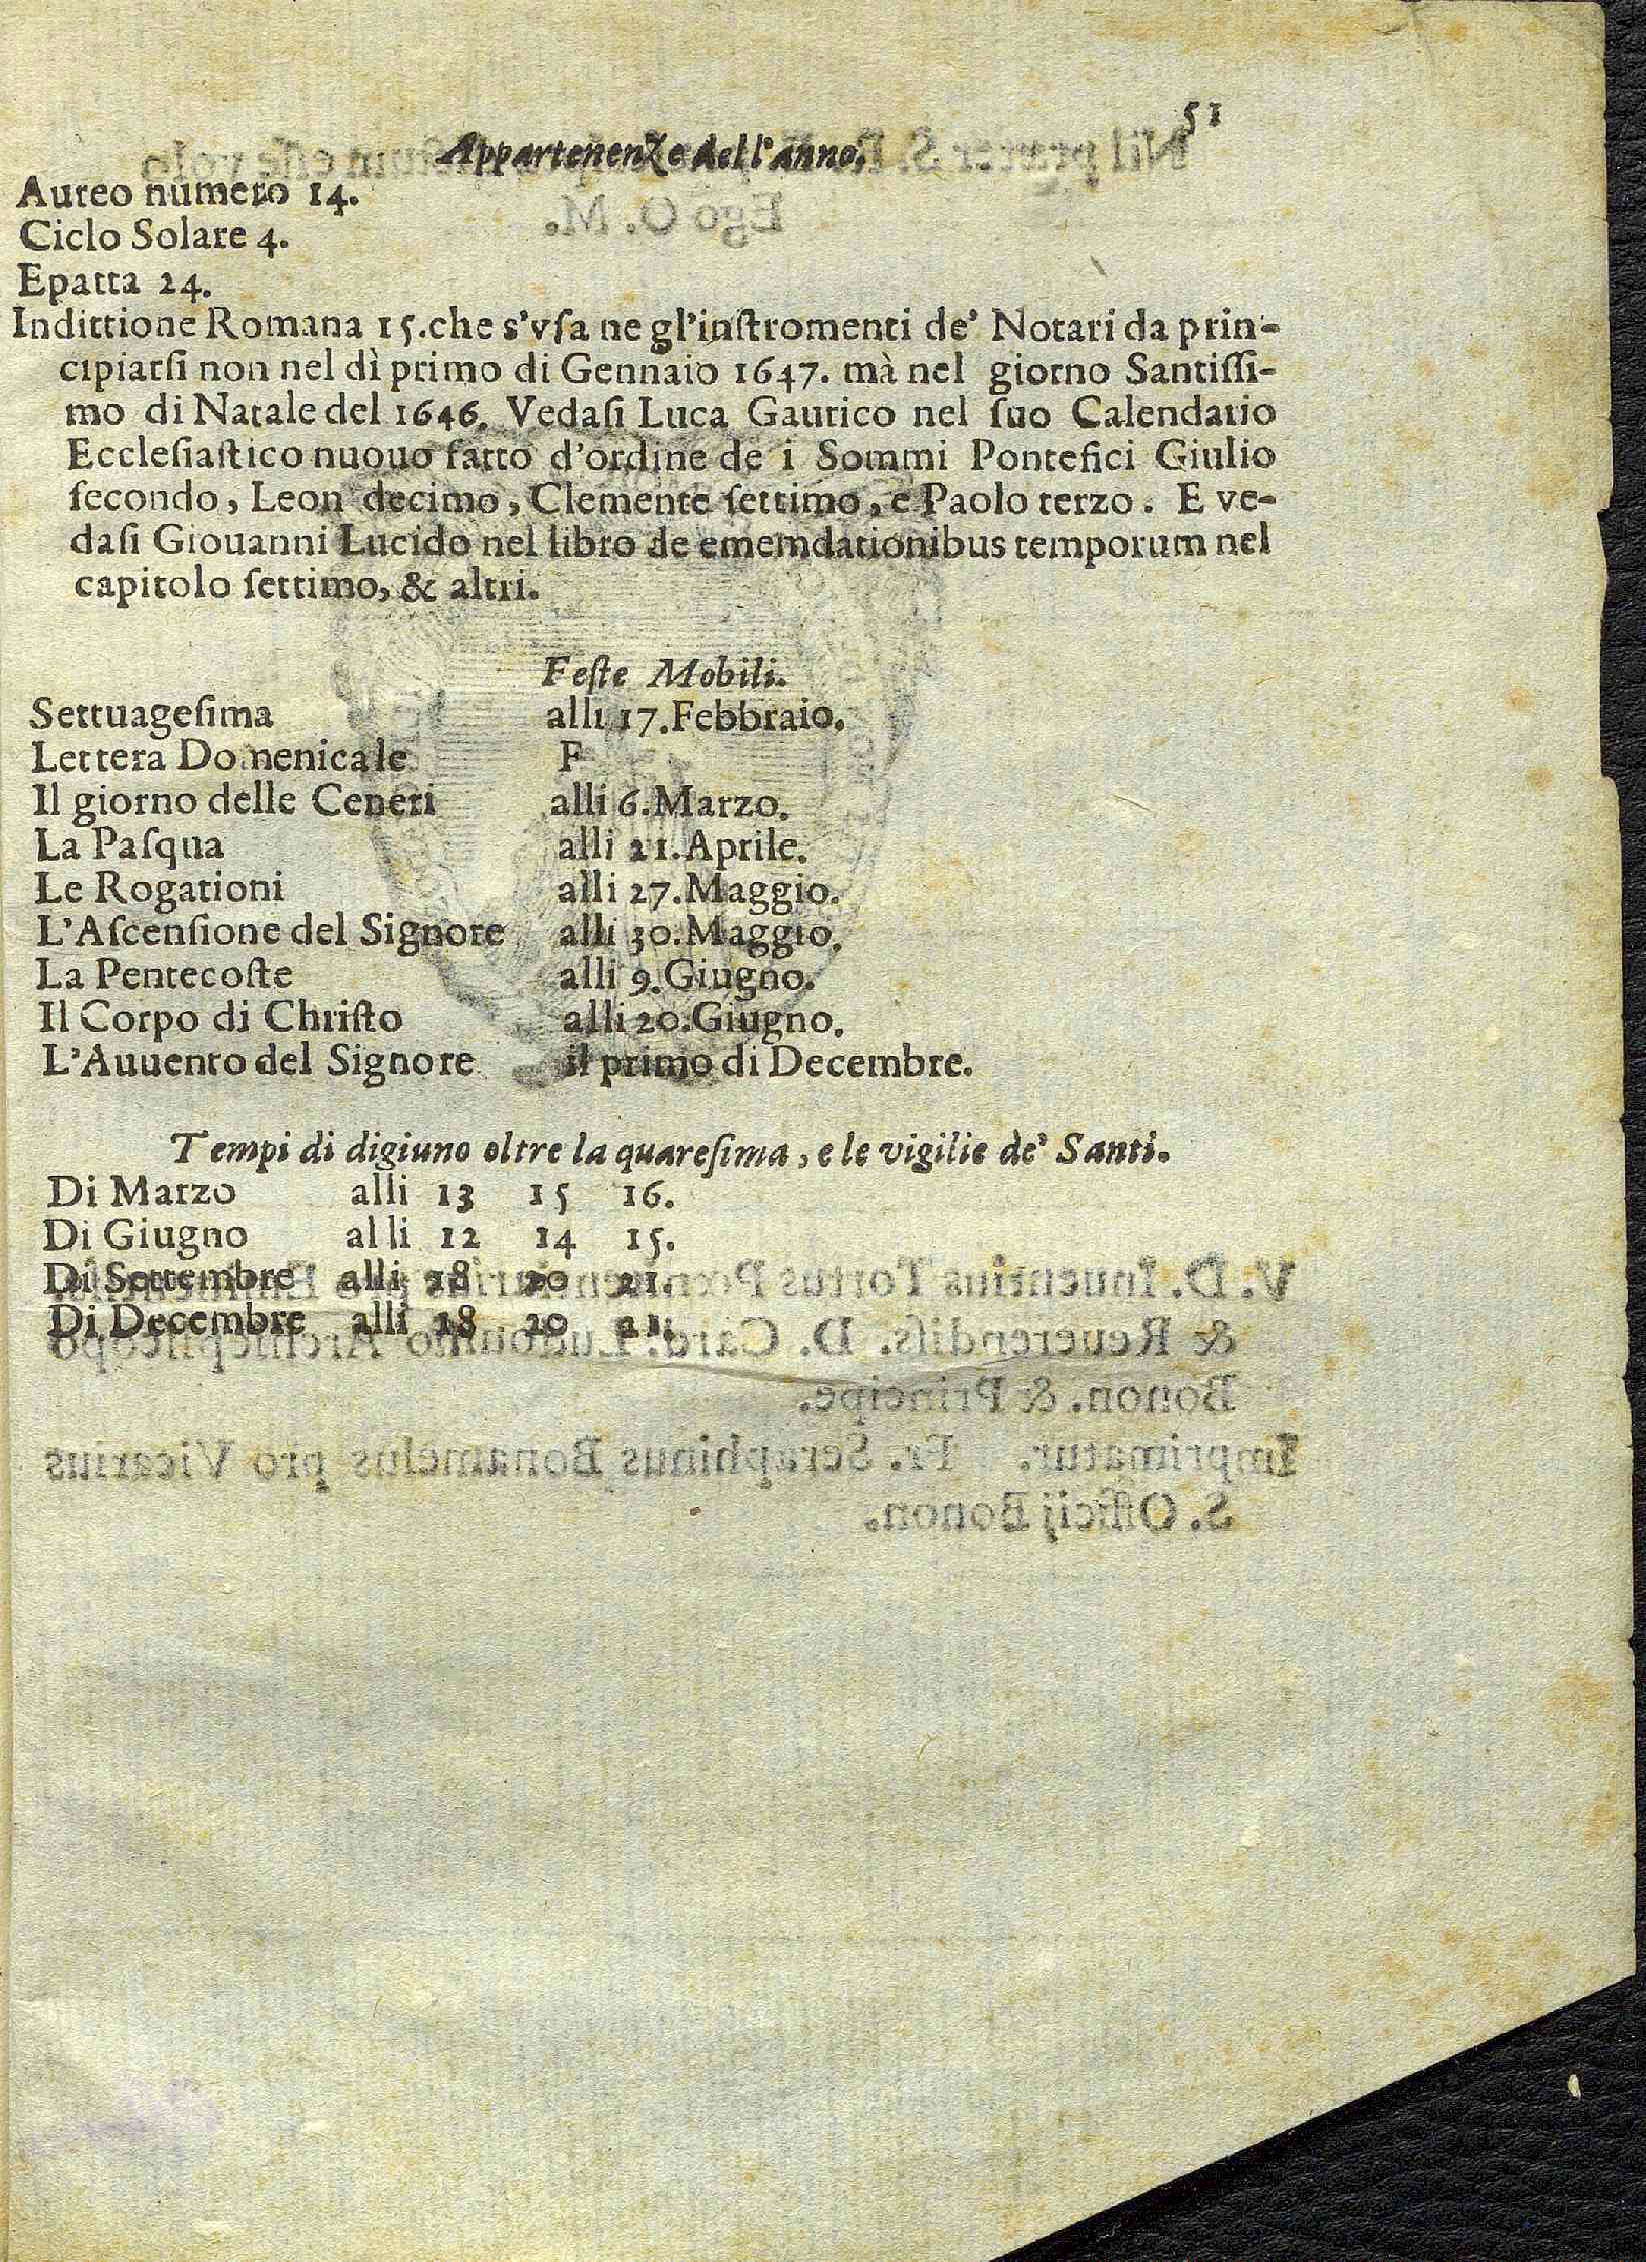 51
Appartenenze dell'anno.
Aureo numero 14.
Ciclo Solare 4.
Epatta 24.
Indittione Romana 15. che s'vſa ne gl'inſtromenti de' Notari da prin-
cipiarſi non nel dì primo di Gennaio 1647. mà nel giorno Santiſſi-
mo di Natale del 1646. Vedaſi Luca Gaurico nel ſuo Calendario
Eccleſiaſtico nuouo fatto d'ordine de i Sommi Pontefici Giulio
ſecondo, Leon decimo, Clemente ſettimo, e Paolo terzo. E ve-
daſi Giouanni Lucido nel libro de ememdationibus temporum nel
capitolo ſettimo, & altri.
Feſte Mobili.
Settuageſima alli 17. Febbraio.
Lettera Domenicale F
Il giorno delle Ceneri alli 6. Marzo.
La Paſqua alli 21. Aprile.
Le Rogationi alli 27. Maggio.
L'Aſcenſione del Signore alli 30. Maggio.
La Pentecoſte alli 9. Giugno.
Il Corpo di Chriſto alli 20. Giugno.
L'Auuento del Signore il primo di Decembre.
Tempi di digiuno oltre la quareſima, e le vigilie de' Santi.
Di Marzo alli 13 15 16.
Di Giugno alli 12 14 15.
Di Settembre alli 18 20 21.
Di Decembre alli 18 20 21.